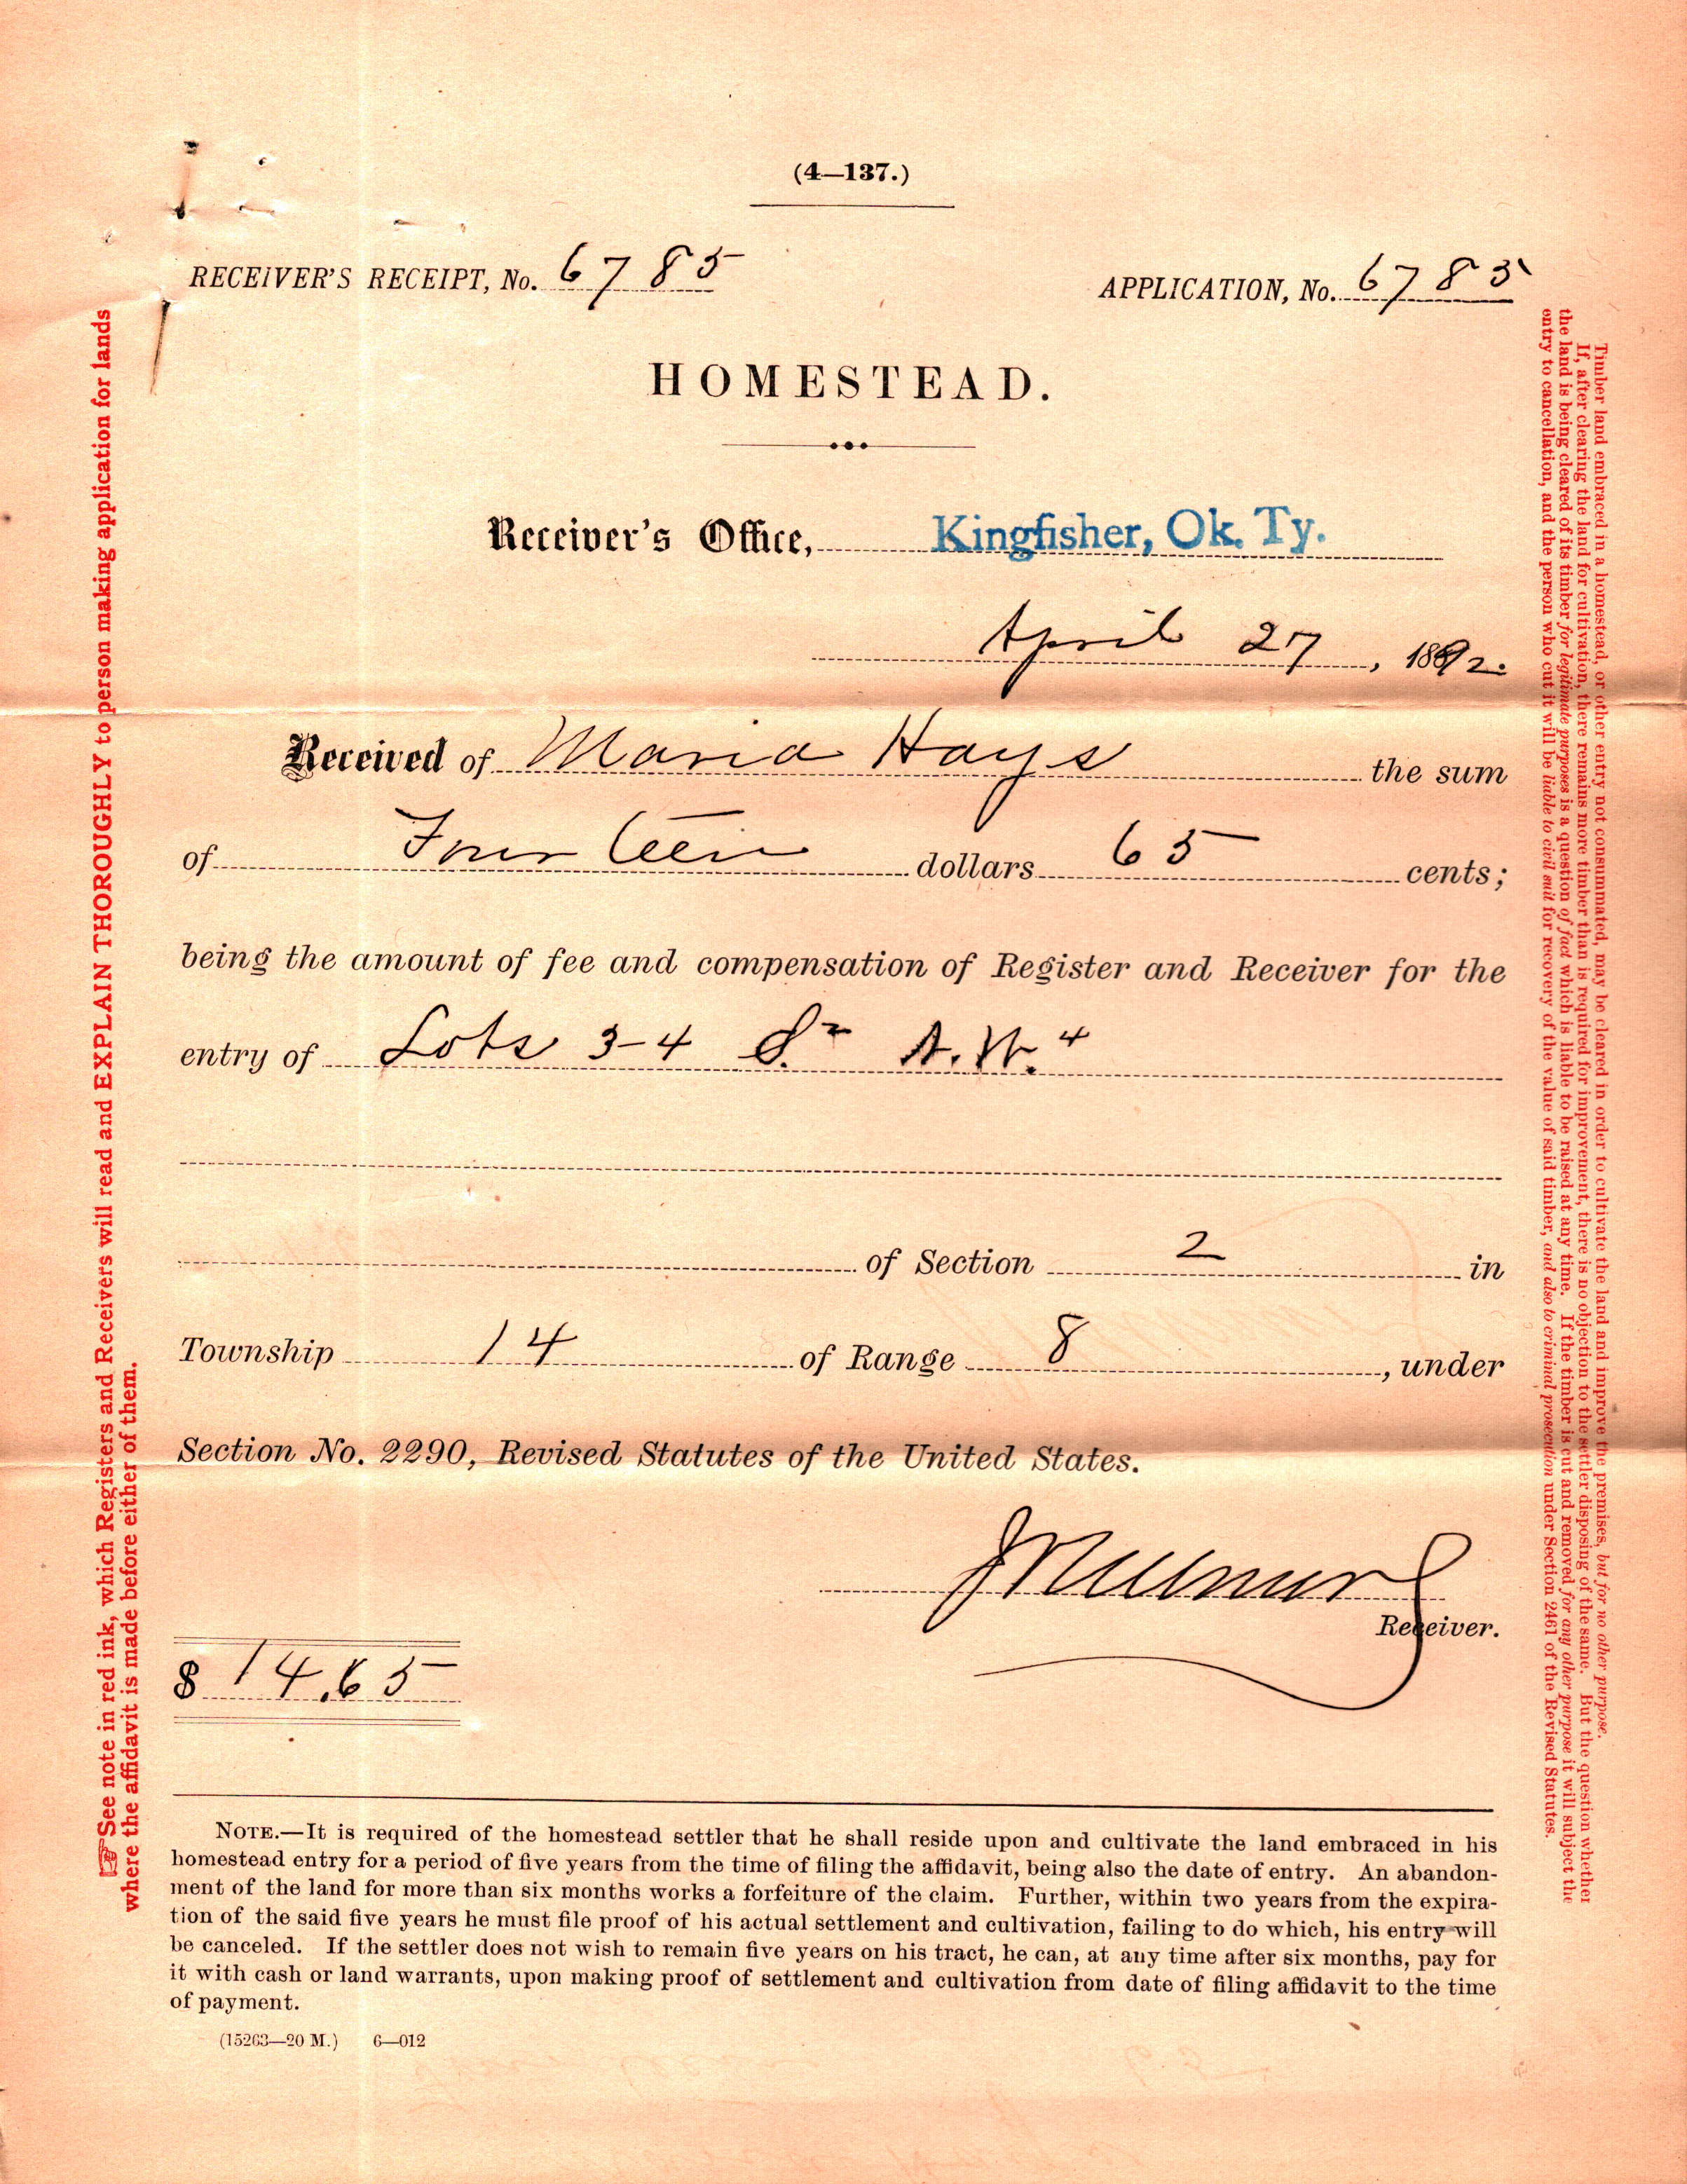 (4—137.)
RECEIVER'S RECEIPT, No. 6785
APPLICATION, No. 6785
HOMESTEAD.
Receiver's Office, Kingfisher, Ok. Ty.
April 27, 1892.
Received of Maria Hays the sum
of Fourteen dollars 65 cents;
being the amount of fee and compensation of Register and Receiver for the
entry of Lots 3-4 S.2 N.W.4
of Section 2 in
Township 14 of Range 8, under
Section No. 2290, Revised Statutes of the United States.
Receiver.
$ 14.65
NOTE.—It is required of the homestead settler that he shall reside upon and cultivate the land embraced in his
homestead entry for a period of five years from the time of filing the affidavit, being also the date of entry. An abandon-
ment of the land for more than six months works a forfeiture of the claim. Further, within two years from the expira-
tion of the said five years he must file proof of his actual settlement and cultivation, failing to do which, his entry will
be canceled. If the settler does not wish to remain five years on his tract, he can, at any time after six months, pay for
it with cash or land warrants, upon making proof of settlement and cultivation from date of filing affidavit to the time
of payment.
(15263—20 M.) 6—012
☞See note in red ink, which Registers and Receivers will read and EXPLAIN THOROUGHLY to person making application for lands
where the affidavit is made before either of them.
Timber land embraced in a homestead, or other entry not consummated, may be cleared in order to cultivate the land and improve the premises, but for no other purpose.
If, after clearing the land for cultivation, there remains more timber than is required for improvement, there is no objection to the settler disposing of the same. But the question whether
the land is being cleared of its timber for legitimate purposes is a question of fact which is liable to be raised at any time. If the timber is cut and removed for any other purpose it will subject the
entry to cancellation, and the person who cut it will be liable to civil suit for recovery of the value of said timber, and also to criminal prosecution under Section 2461 of the Revised Statutes.